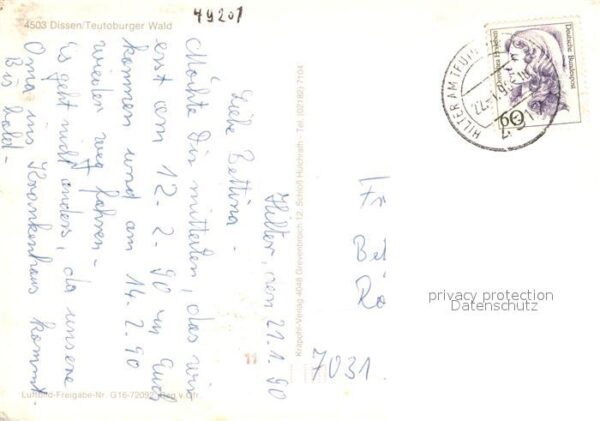 49201
4503 Dissen/Teutoburger Wald
Hilter, den 21.1.90
Liebe Bettina -
Möchte Dir mitteilen, das wir
erst am 12.2.90 in Euch
kommen und am 14.2.90
wieder weg fahren -
Es geht nicht anders, da unsere
Oma ins Krankenhaus kommt.
Bis bald -
Krapohl-Verlag 4048 Grevenbroich 12, Schloß Hülchrath - Tel. (02182) 7104
11
Luftbild-Freigabe-Nr. G16-72092 Reg.v.Ofr.
Deutsche Bundespost
60
HILTER AM TEUTO
Fr
Bet
Rö
7031
privacy protection
Datenschutz